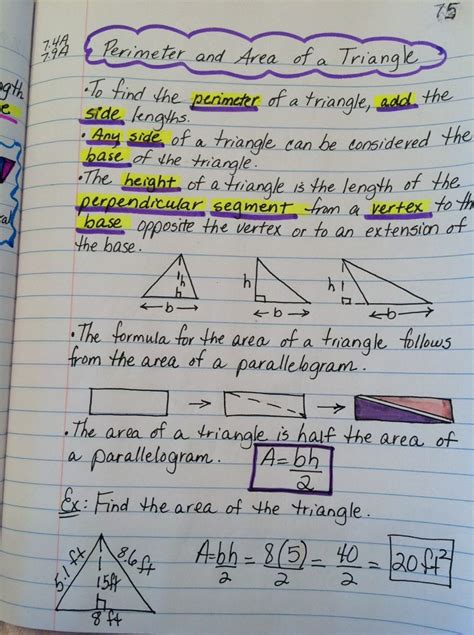 75
7.4A
7.9A
Perimeter and Area of a Triangle
• To find the perimeter of a triangle, add the
side lengths.
• Any side of a triangle can be considered the
base of the triangle.
• The height of a triangle is the length of the
perpendricular segment from a vertex to th
base opposite the vertex or to an extension of
the base.
h h h
b b b
• The formula for the area of a triangle follows
from the area of a parallelogram.
• The area of a triangle is half the area of
a parallelogram. A = bh/2
Ex: Find the area of the triangle.
5.1 ft 8.6 ft
15ft
8 ft
A = bh/2 = 8(5)/2 = 40/2 = 20 ft²